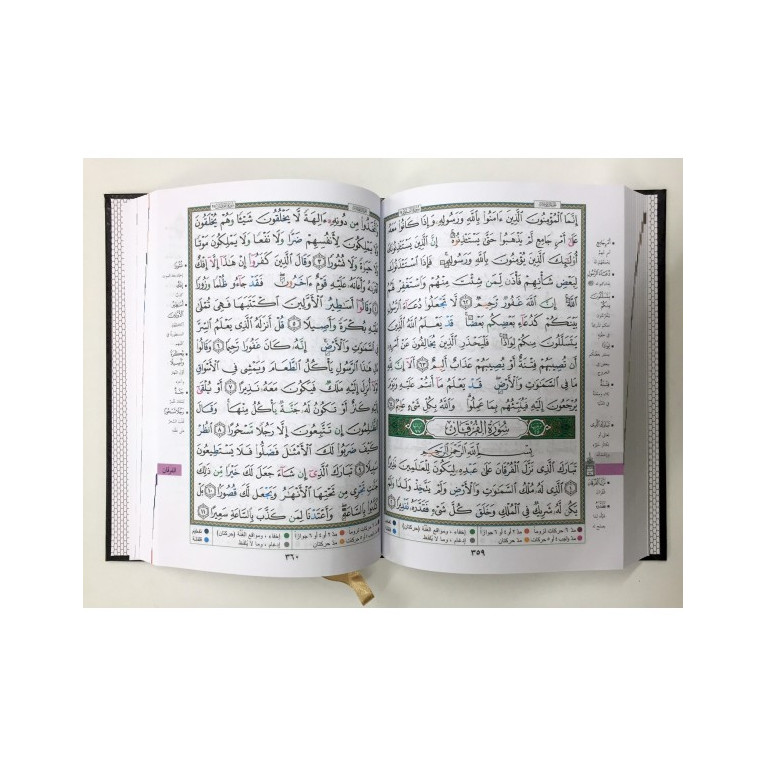 إِنَّمَا الْمُؤْمِنُونَ الَّذِينَ ءَامَنُوا بِاللَّهِ وَرَسُولِهِ وَإِذَا كَانُوا مَعَهُ
عَلَىٰ أَمْرٍ جَامِعٍ لَّمْ يَذْهَبُوا حَتَّىٰ يَسْتَـْٔذِنُوهُ إِنَّ الَّذِينَ يَسْتَـْٔذِنُونَكَ
أُولَٰئِكَ الَّذِينَ يُؤْمِنُونَ بِاللَّهِ وَرَسُولِهِ فَإِذَا اسْتَـْٔذَنُوكَ
لِبَعْضِ شَأْنِهِمْ فَأْذَن لِّمَن شِئْتَ مِنْهُمْ وَاسْتَغْفِرْ لَهُمُ
اللَّهَ إِنَّ اللَّهَ غَفُورٌ رَّحِيمٌ ٦٢ لَّا تَجْعَلُوا دُعَاءَ الرَّسُولِ
بَيْنَكُمْ كَدُعَاءِ بَعْضِكُم بَعْضًا قَدْ يَعْلَمُ اللَّهُ الَّذِينَ
يَتَسَلَّلُونَ مِنكُمْ لِوَاذًا فَلْيَحْذَرِ الَّذِينَ يُخَالِفُونَ عَنْ أَمْرِهِ
أَن تُصِيبَهُمْ فِتْنَةٌ أَوْ يُصِيبَهُمْ عَذَابٌ أَلِيمٌ ٦٣ أَلَا إِنَّ لِلَّهِ
مَا فِي السَّمَٰوَٰتِ وَالْأَرْضِ قَدْ يَعْلَمُ مَا أَنتُمْ عَلَيْهِ وَيَوْمَ
يُرْجَعُونَ إِلَيْهِ فَيُنَبِّئُهُم بِمَا عَمِلُوا وَاللَّهُ بِكُلِّ شَيْءٍ عَلِيمٌ ٦٤
سُورَةُ الْفُرْقَانِ
بِسْمِ اللَّهِ الرَّحْمَٰنِ الرَّحِيمِ
تَبَارَكَ الَّذِي نَزَّلَ الْفُرْقَانَ عَلَىٰ عَبْدِهِ لِيَكُونَ لِلْعَٰلَمِينَ نَذِيرًا
١ الَّذِي لَهُ مُلْكُ السَّمَٰوَٰتِ وَالْأَرْضِ وَلَمْ يَتَّخِذْ وَلَدًا وَلَمْ
يَكُن لَّهُ شَرِيكٌ فِي الْمُلْكِ وَخَلَقَ كُلَّ شَيْءٍ فَقَدَّرَهُ تَقْدِيرًا ٢
٣٥٩
وَاتَّخَذُوا مِن دُونِهِ ءَالِهَةً لَّا يَخْلُقُونَ شَيْـًٔا وَهُمْ يُخْلَقُونَ
وَلَا يَمْلِكُونَ لِأَنفُسِهِمْ ضَرًّا وَلَا نَفْعًا وَلَا يَمْلِكُونَ مَوْتًا
وَلَا حَيَوٰةً وَلَا نُشُورًا ٣ وَقَالَ الَّذِينَ كَفَرُوا إِنْ هَٰذَا إِلَّا إِفْكٌ
افْتَرَىٰهُ وَأَعَانَهُ عَلَيْهِ قَوْمٌ ءَاخَرُونَ فَقَدْ جَاءُو ظُلْمًا وَزُورًا
٤ وَقَالُوا أَسَٰطِيرُ الْأَوَّلِينَ اكْتَتَبَهَا فَهِيَ تُمْلَىٰ
عَلَيْهِ بُكْرَةً وَأَصِيلًا ٥ قُلْ أَنزَلَهُ الَّذِي يَعْلَمُ السِّرَّ
فِي السَّمَٰوَٰتِ وَالْأَرْضِ إِنَّهُ كَانَ غَفُورًا رَّحِيمًا ٦ وَقَالُوا
مَالِ هَٰذَا الرَّسُولِ يَأْكُلُ الطَّعَامَ وَيَمْشِي فِي الْأَسْوَاقِ
لَوْلَا أُنزِلَ إِلَيْهِ مَلَكٌ فَيَكُونَ مَعَهُ نَذِيرًا ٧ أَوْ يُلْقَىٰ
إِلَيْهِ كَنزٌ أَوْ تَكُونُ لَهُ جَنَّةٌ يَأْكُلُ مِنْهَا وَقَالَ
الظَّٰلِمُونَ إِن تَتَّبِعُونَ إِلَّا رَجُلًا مَّسْحُورًا ٨ انظُرْ
كَيْفَ ضَرَبُوا لَكَ الْأَمْثَٰلَ فَضَلُّوا فَلَا يَسْتَطِيعُونَ
سَبِيلًا ٩ تَبَارَكَ الَّذِي إِن شَاءَ جَعَلَ لَكَ خَيْرًا مِّن ذَٰلِكَ
جَنَّٰتٍ تَجْرِي مِن تَحْتِهَا الْأَنْهَٰرُ وَيَجْعَل لَّكَ قُصُورًا ١٠
بَلْ كَذَّبُوا بِالسَّاعَةِ وَأَعْتَدْنَا لِمَن كَذَّبَ بِالسَّاعَةِ سَعِيرًا ١١
٣٦٠
الفرقان